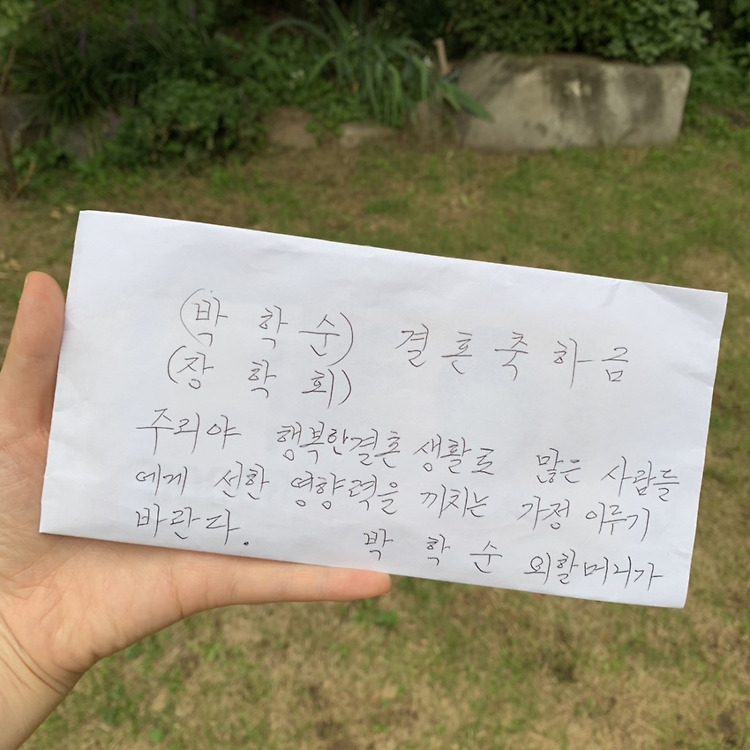 (박 학 순) 결 혼 축 하 금
(장 학 회)
주리야 행복한결혼 생활로 많은 사람들
에게 선한 영향력을 끼치는 가정 이루기
바란다. 박 학 순 외할머니가